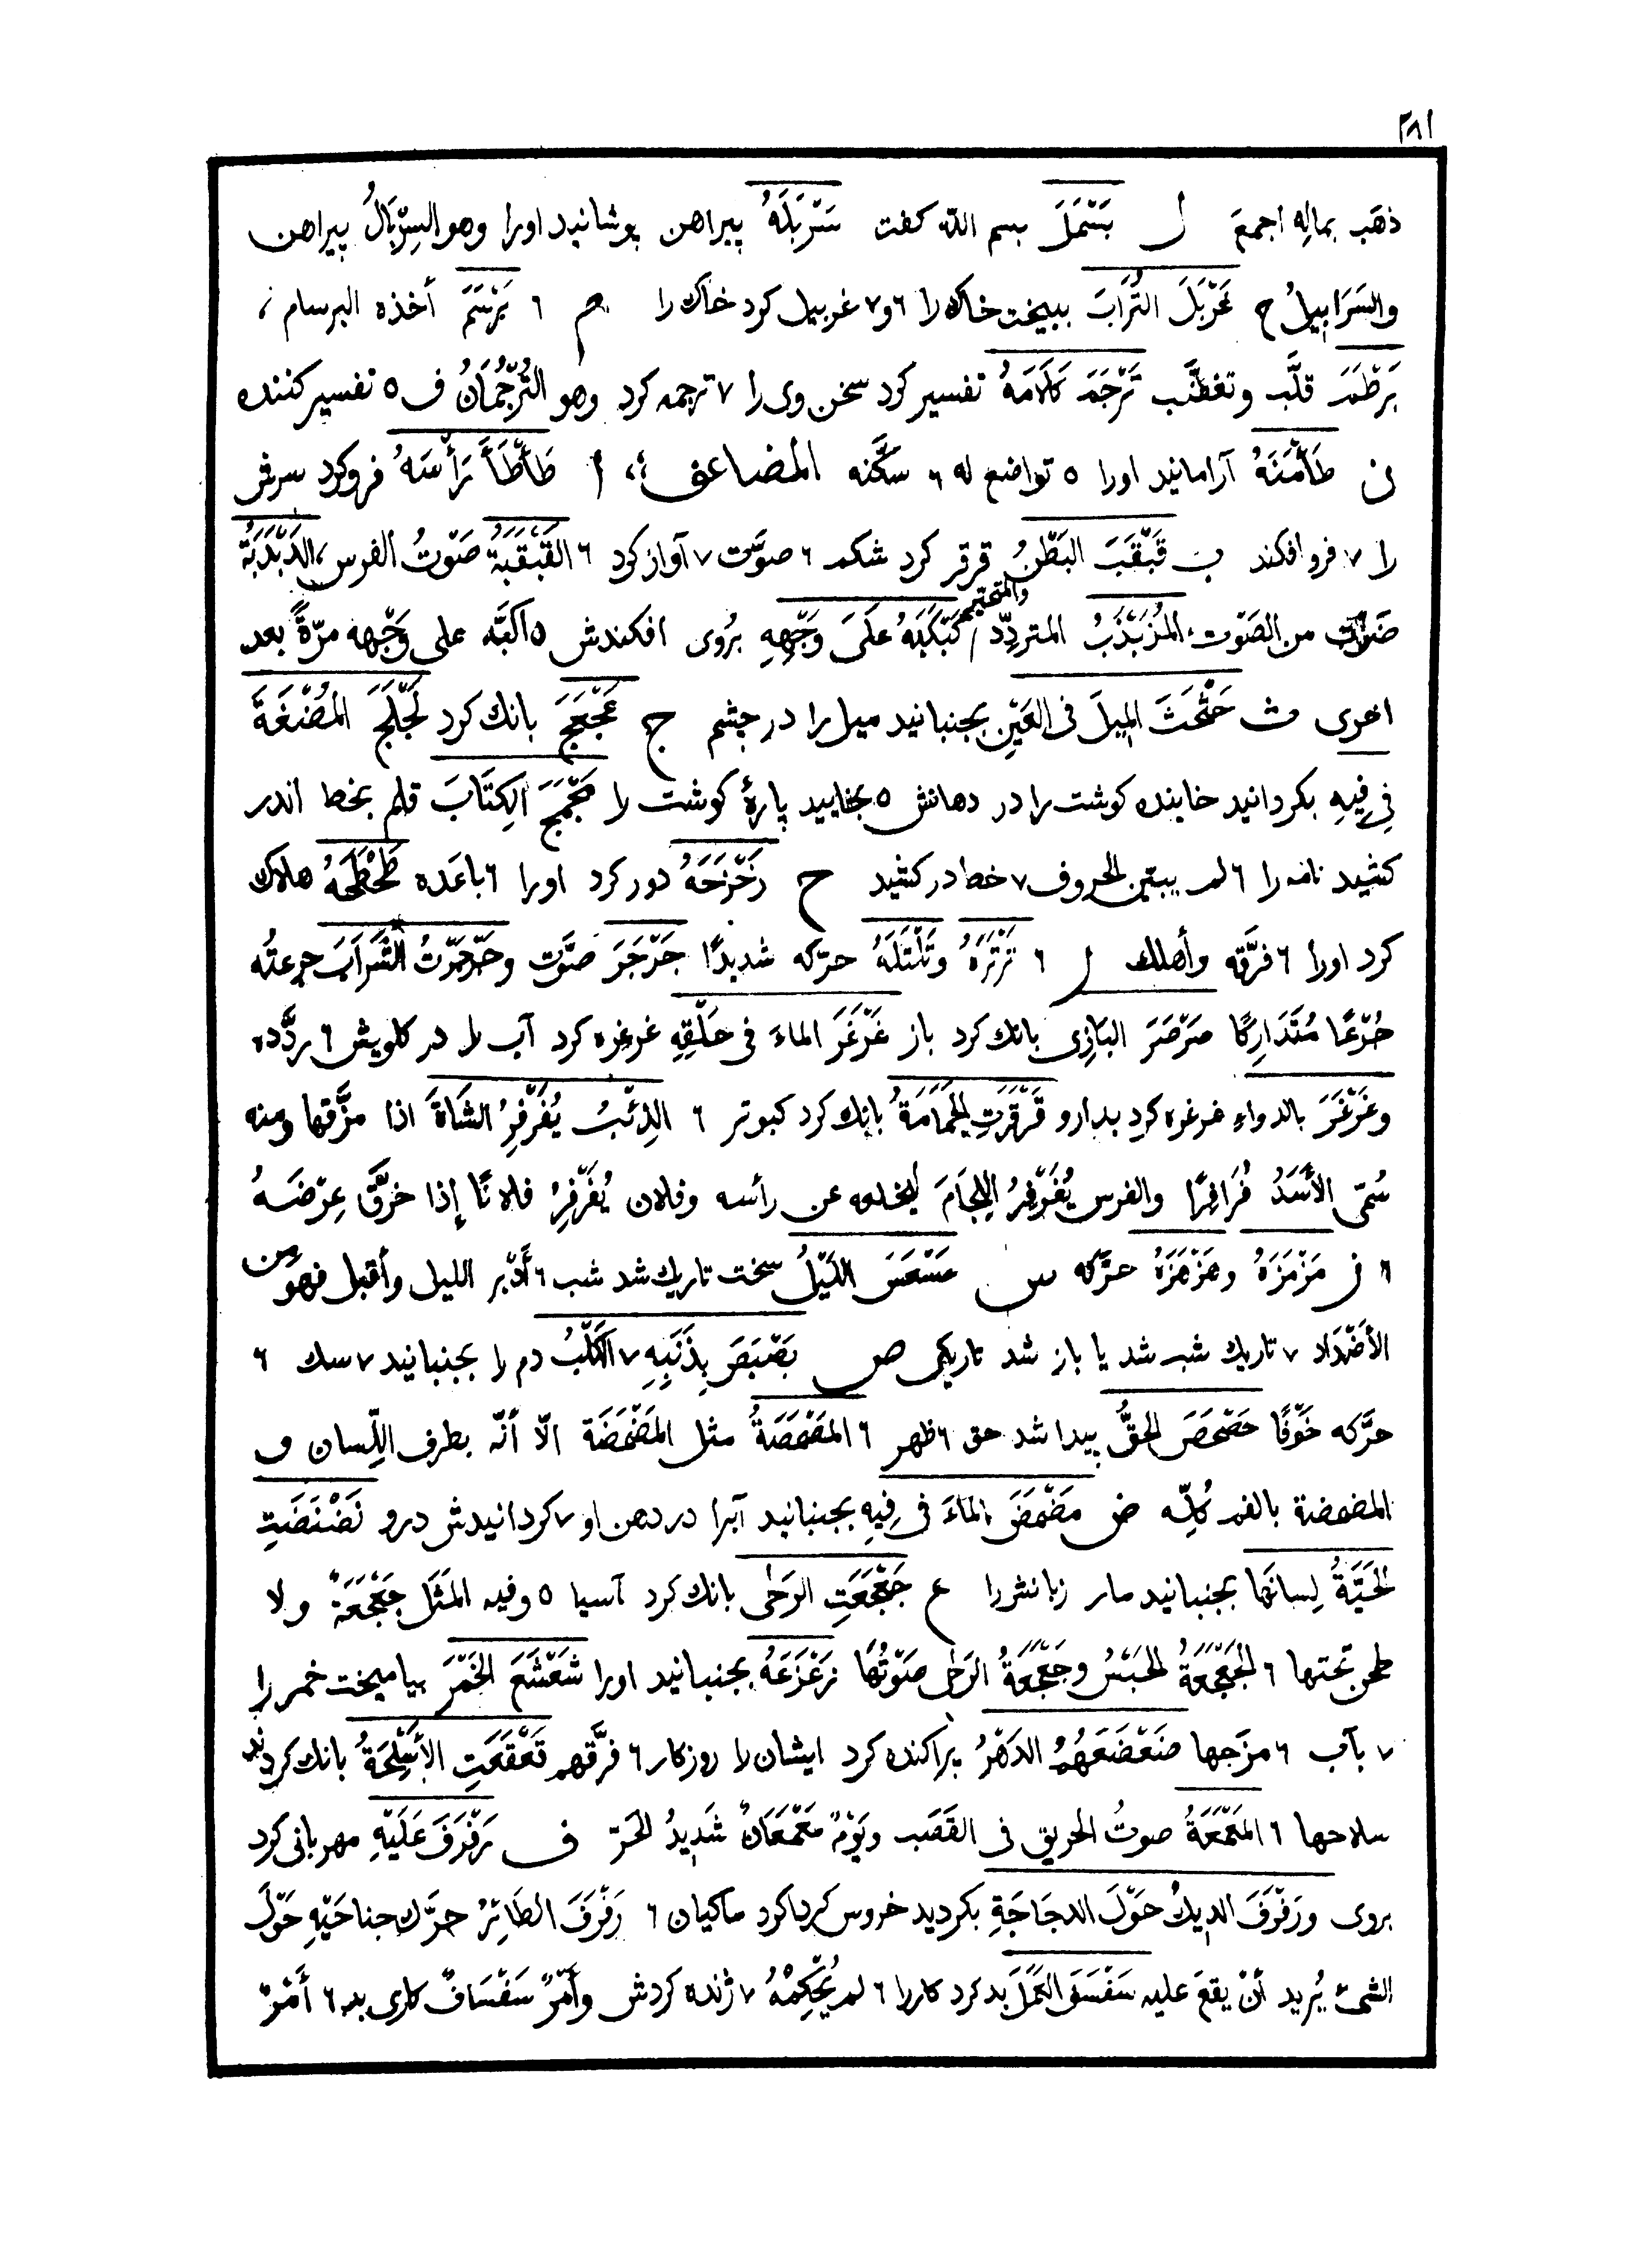 ٢٨١
ذهَب بمالِه اجمعَ ل بَسْمَلَ بسم الله كفت سَرْبَلَهُ پيراهن پوشانيد اورا وهو السِرْبَالُ پيراهن
والسَرَابِيلُ ج غَرْبَلَ التُرَابَ ببيخت خاك را ٦ و ٧ غربيل كرد خاك را م ٦ بَرْسَمَ أخذه البرسام ،
بَرْطَمَ قلَّب وتغضَّب تَرْجَمَ كَلَامَهُ تفسير كرد سخن وى را ٧ ترجمه كرد وهو التُرْجُمَانُ ف ٥ تفسير كننده
ن طَأْمَنَهُ آرامانيد اورا ٥ تواضع له ٦ سكَّنه المضاعف ؛، أ طَأْطَأَ رَأْسَهُ فروكرد سرش
را ٧ فرو افكند ب قَبْقَبَ البَطْنُ قرقر كرد شكم ٦ صوَّت ٧ آواز كرد ٦ القَبْقَبَةُ صَوْتُ الفرس ، الدَبْدَبَةُ
ضَرْبٌ من الصَوْت ، المُذَبْذَبُ المتردِّد والمتحيّر كَبْكَبَهُ عَلَىَ وَجْهِهِ بُروى افكندش ٥ اكبَّه على وَجْهه مرّةً بعد
اخرى ث حَثْحَثَ المِيلَ فى العَيْنِ بجنبانيد ميل را در چشم ج عَجْعَجَ بانك كرد لَجْلَجَ المُضْغَةَ
فِى فِيهِ بكردانيد خاينده كوشت را در دهانش ٥ بخاييد پارهٔ كوشت را مَجْمَجَ الكِتَابَ قلم بخط اندر
كشيد نامه را ٦ لم يبيّن الحروف ٧ خط در كشيد ح زَحْزَحَهُ دور كرد اورا ٦ باعَده طَحْطَحَهُ هلاك
كرد اورا ٦ فرَّقه وأهلك ر ٦ تَرْتَرَهُ وتَلْتَلَهُ حرّكه شديدًا جَرْجَرَ صوَّت وجَرْجَرْتُ الشَرَابَ جرعتُه
جُرْعًا مُتَدَارِكًا صَرْصَرَ البَازِى بانك كرد باز غَرْغَرَ الماءَ فى حَلْقِهِ غرغره كرد آب را در كلويش ٦ ردَّده
وغَرْغَرَ بالدواءِ غرغره كرد بدارو قَرْقَرَتِ الحَمَامَةُ بانك كرد كبوتر ٦ الذِئْبُ يُفَرْفِرُ الشَاةَ اذا مزَّقها ومنه
سُمّى الأَسَدُ فُرَافِرًا والفرس يُفَرْفِرُ اللِجَامَ ليخلعه عن رأسه وفلان يُفَرْفِرُ فلانًا إذا خرَّق عِرْضَهُ
٦ ز مَزْمَزَهُ وهَزْهَزَهُ حرَّكه س عَسْعَسَ اللَيْلُ سخت تاريك شد شب ٦ أَدْبَر الليل وأقبل فهو من
الأضْدَاد ٧ تاريك شب شد يا باز شد تاريكى ص بَصْبَصَ بِذَنَبِهِ ٧ الكَلْبُ دم را بجنبانيد ٧ سك ٦
حرَّكه خَوْفًا حَصْحَصَ الحَقُّ پيدا شد حق ٦ ظهر ٦ المَصْمَصَةُ مثل المَضْمَضَة الّا أنّه بطرف اللِّسان و
المضمضة بالفم كُلِّه ض مَضْمَضَ الماءَ فى فِيهِ بجنبانيد آبرا در دهن او ٧ كردانيدش درو نَضْنَضَتِ
الحَيَّةُ لِسانَهَا بجنبانيد مار زبانش را ع جَعْجَعَتِ الرَحٰى بانك كرد آسيا ٥ وفيه المَثَل جَعْجَعَةٌ ولا
طحن تحتها ٦ الجَعْجَعَةُ الحَبْسُ وجَعْجَعَةُ الرَحٰى صَوْتُهَا زَعْزَعَهُ بجنبانيد اورا شَعْشَعَ الخَمْرَ بياميخت خمر را
٧ بآب ٦ مزَجها ضَعْضَعَهُمُ الدَهْرُ پراكنده كرد ايشان را روزكار ٦ فرَّقهم قَعْقَعَتِ الأَسْلِحَةُ بانك كردند
سلاحها ٦ المَعْمَعَةُ صوتُ الحريق فى القَصَب ويَوْمٌ مَعْمَعَانٌ شَدِيدُ الحَرّ ف رَفْرَفَ عَلَيْهِ مهربانى كرد
بروى ورَفْرَفَ الديكُ حَوْلَ الدجَاجَةِ بكرديد خروس كرداكرد ماكيان ٦ رَفْرَفَ الطَائِرُ حرَّك جناحَيْهِ حَوْلَ
الشىْء يُريد أنْ يقعَ عليه سَفْسَفَ العَمَلَ بد كرد كاررا ٦ لم يُحْكِمْهُ ٧ ژنده كردش وأَمْرٌ سَفْسَافٌ كارى بد ٦ أَمْرٌ